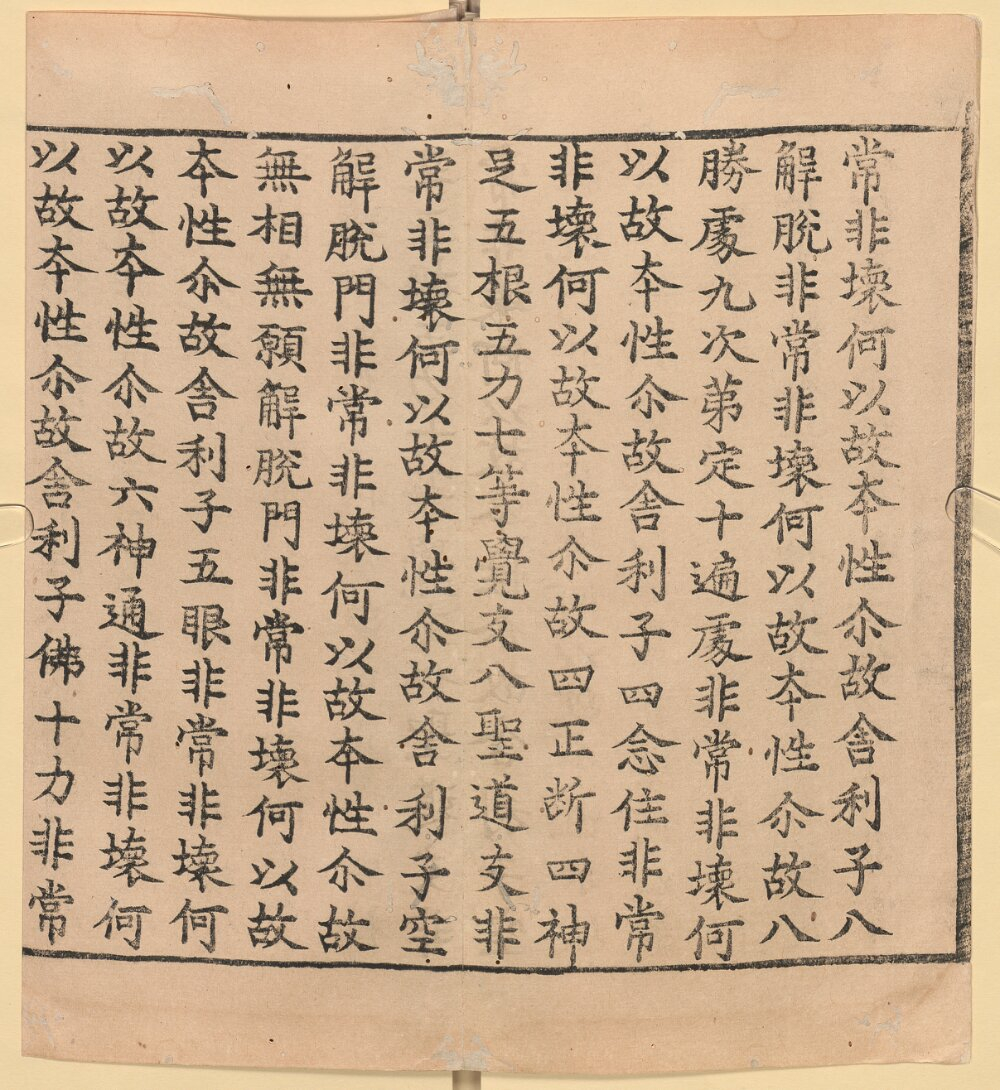 常非壞何以故本性尒故舎利子八
解脫非常非壞何以故本性尒故八
勝處九次苐定十遍處非常非壞何
以故本性尒故舎利子四念住非常
非壞何以故本性尒故四正断四神
足五根五力七等覺支八聖道支非
常非壞何以故本性尒故舎利子空
解脫門非常非壞何以故本性尒故
無相無願解脫門非常非壞何以故
本性尒故舎利子五眼非常非壞何
以故本性尒故六神通非常非壞何
以故本性尒故舎利子佛十力非常